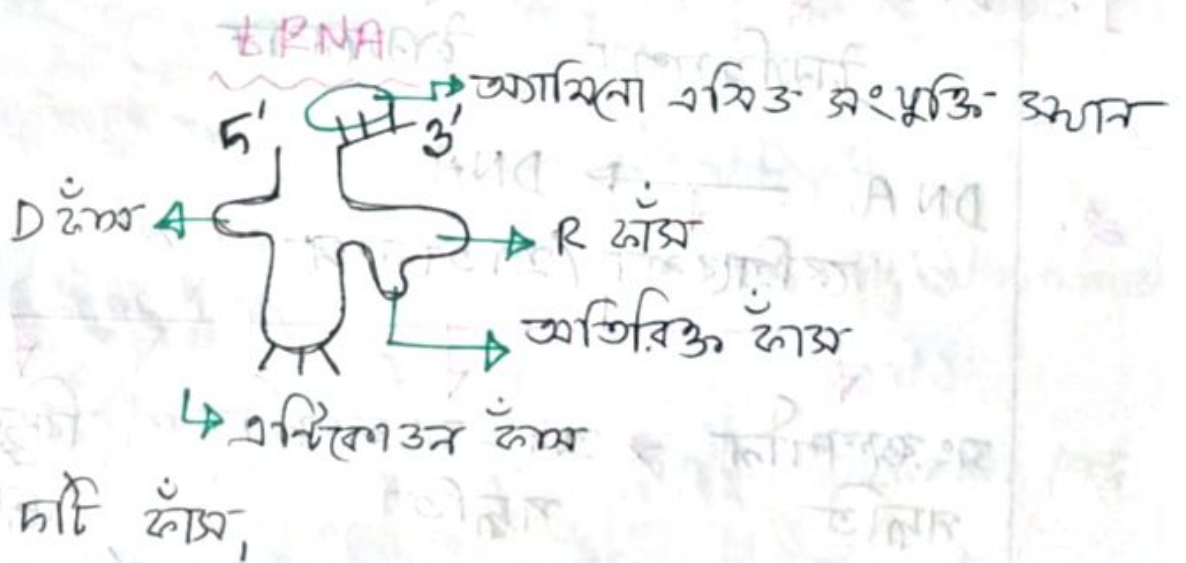 tRNA
অ্যামিনো এসিড সংযুক্তি স্থান
5' 3'
D ফাঁস
R ফাঁস
অতিরিক্ত ফাঁস
এন্টিকোডন ফাঁস
ফাঁস,